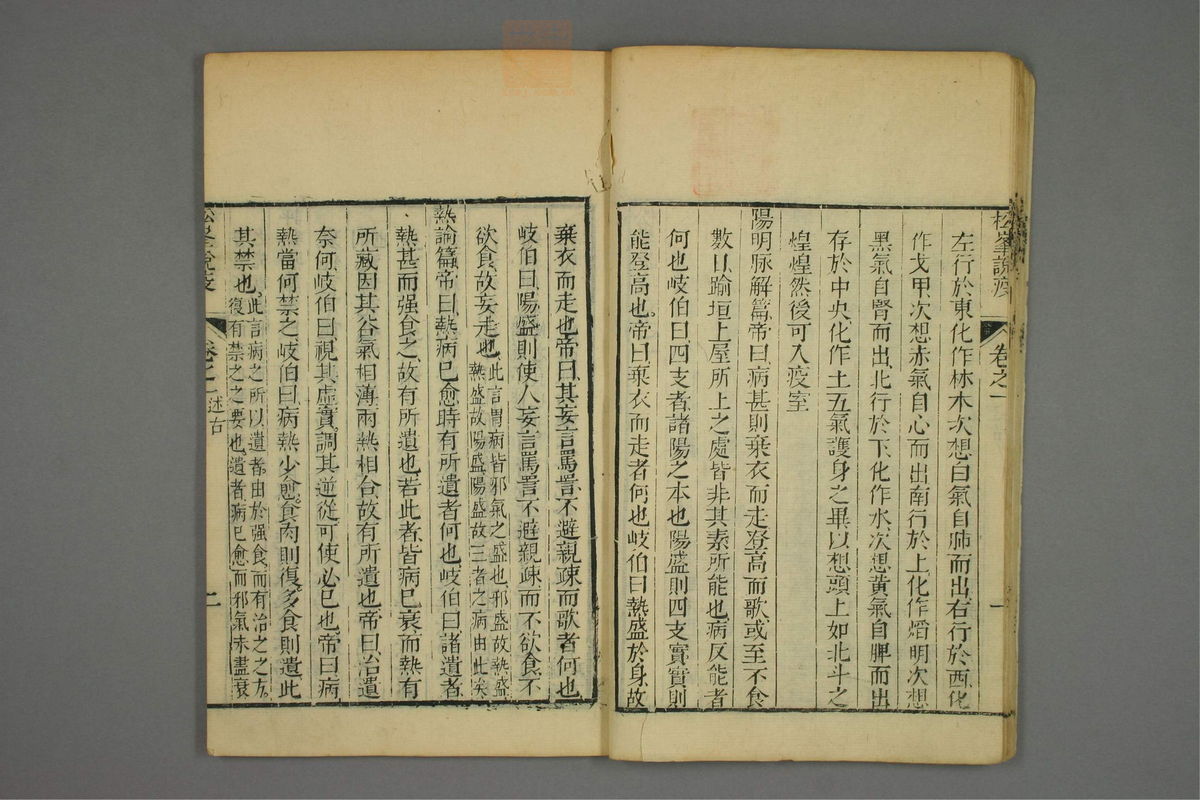 松峯說疫 卷之一 一
左行於東化作林木次想白氣自肺而出右行於西化
作戈甲次想赤氣自心而出南行於上化作熖明次想
黑氣自腎而出北行於下化作水次想黃氣自脾而出
存於中央化作土五氣護身之畢以想頭上如北斗之
煌煌然後可入疫室
陽明脉解篇帝曰病甚則棄衣而走登高而歌或至不食
數日踰垣上屋所上之處皆非其素所能也病反能者
何也岐伯曰四支者諸陽之本也陽盛則四支實實則
能登高也帝曰棄衣而走者何也岐伯曰熱盛於身故
棄衣而走也帝曰其妄言罵詈不避親疎而歌者何也
岐伯曰陽盛則使人妄言罵詈不避親疎而不欲食不
欲食故妄走也此言胃病皆邪氣之盛也邪盛故熱盛
熱盛故陽盛陽盛故三者之病由此矣
熱論篇帝曰熱病已愈時有所遺者何也岐伯曰諸遺者
熱甚而强食之故有所遺也若此者皆病已衰而熱有
所藏因其谷氣相薄兩熱相合故有所遺也帝曰治遺
奈何岐伯曰視其虛實調其逆從可使必已也帝曰病
熱當何禁之岐伯曰病熱少愈食肉則復多食則遺此
其禁也此言病之所以遺者由於强食而有治之之方
復有禁之之要也遺者病已愈而邪氣未盡衰
松峯說疫 卷之一 述古 二